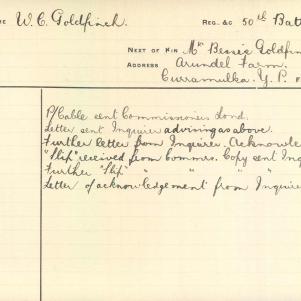 W. C. Goldfinch. REG. &C 50th Batt
NEXT OF KIN Mrs Bessie Goldfin
ADDRESS Arundel Farm.
Curramulka. Y. P.
P/Cable sent Commissioner Lond.
Letter sent Inquirer advising as above.
Further letter from Inquirer. Acknowle
"Slip" received from Commrs. Copy sent Inq
Further "Slip" " " " "
Letter of acknowledgement from Inquire